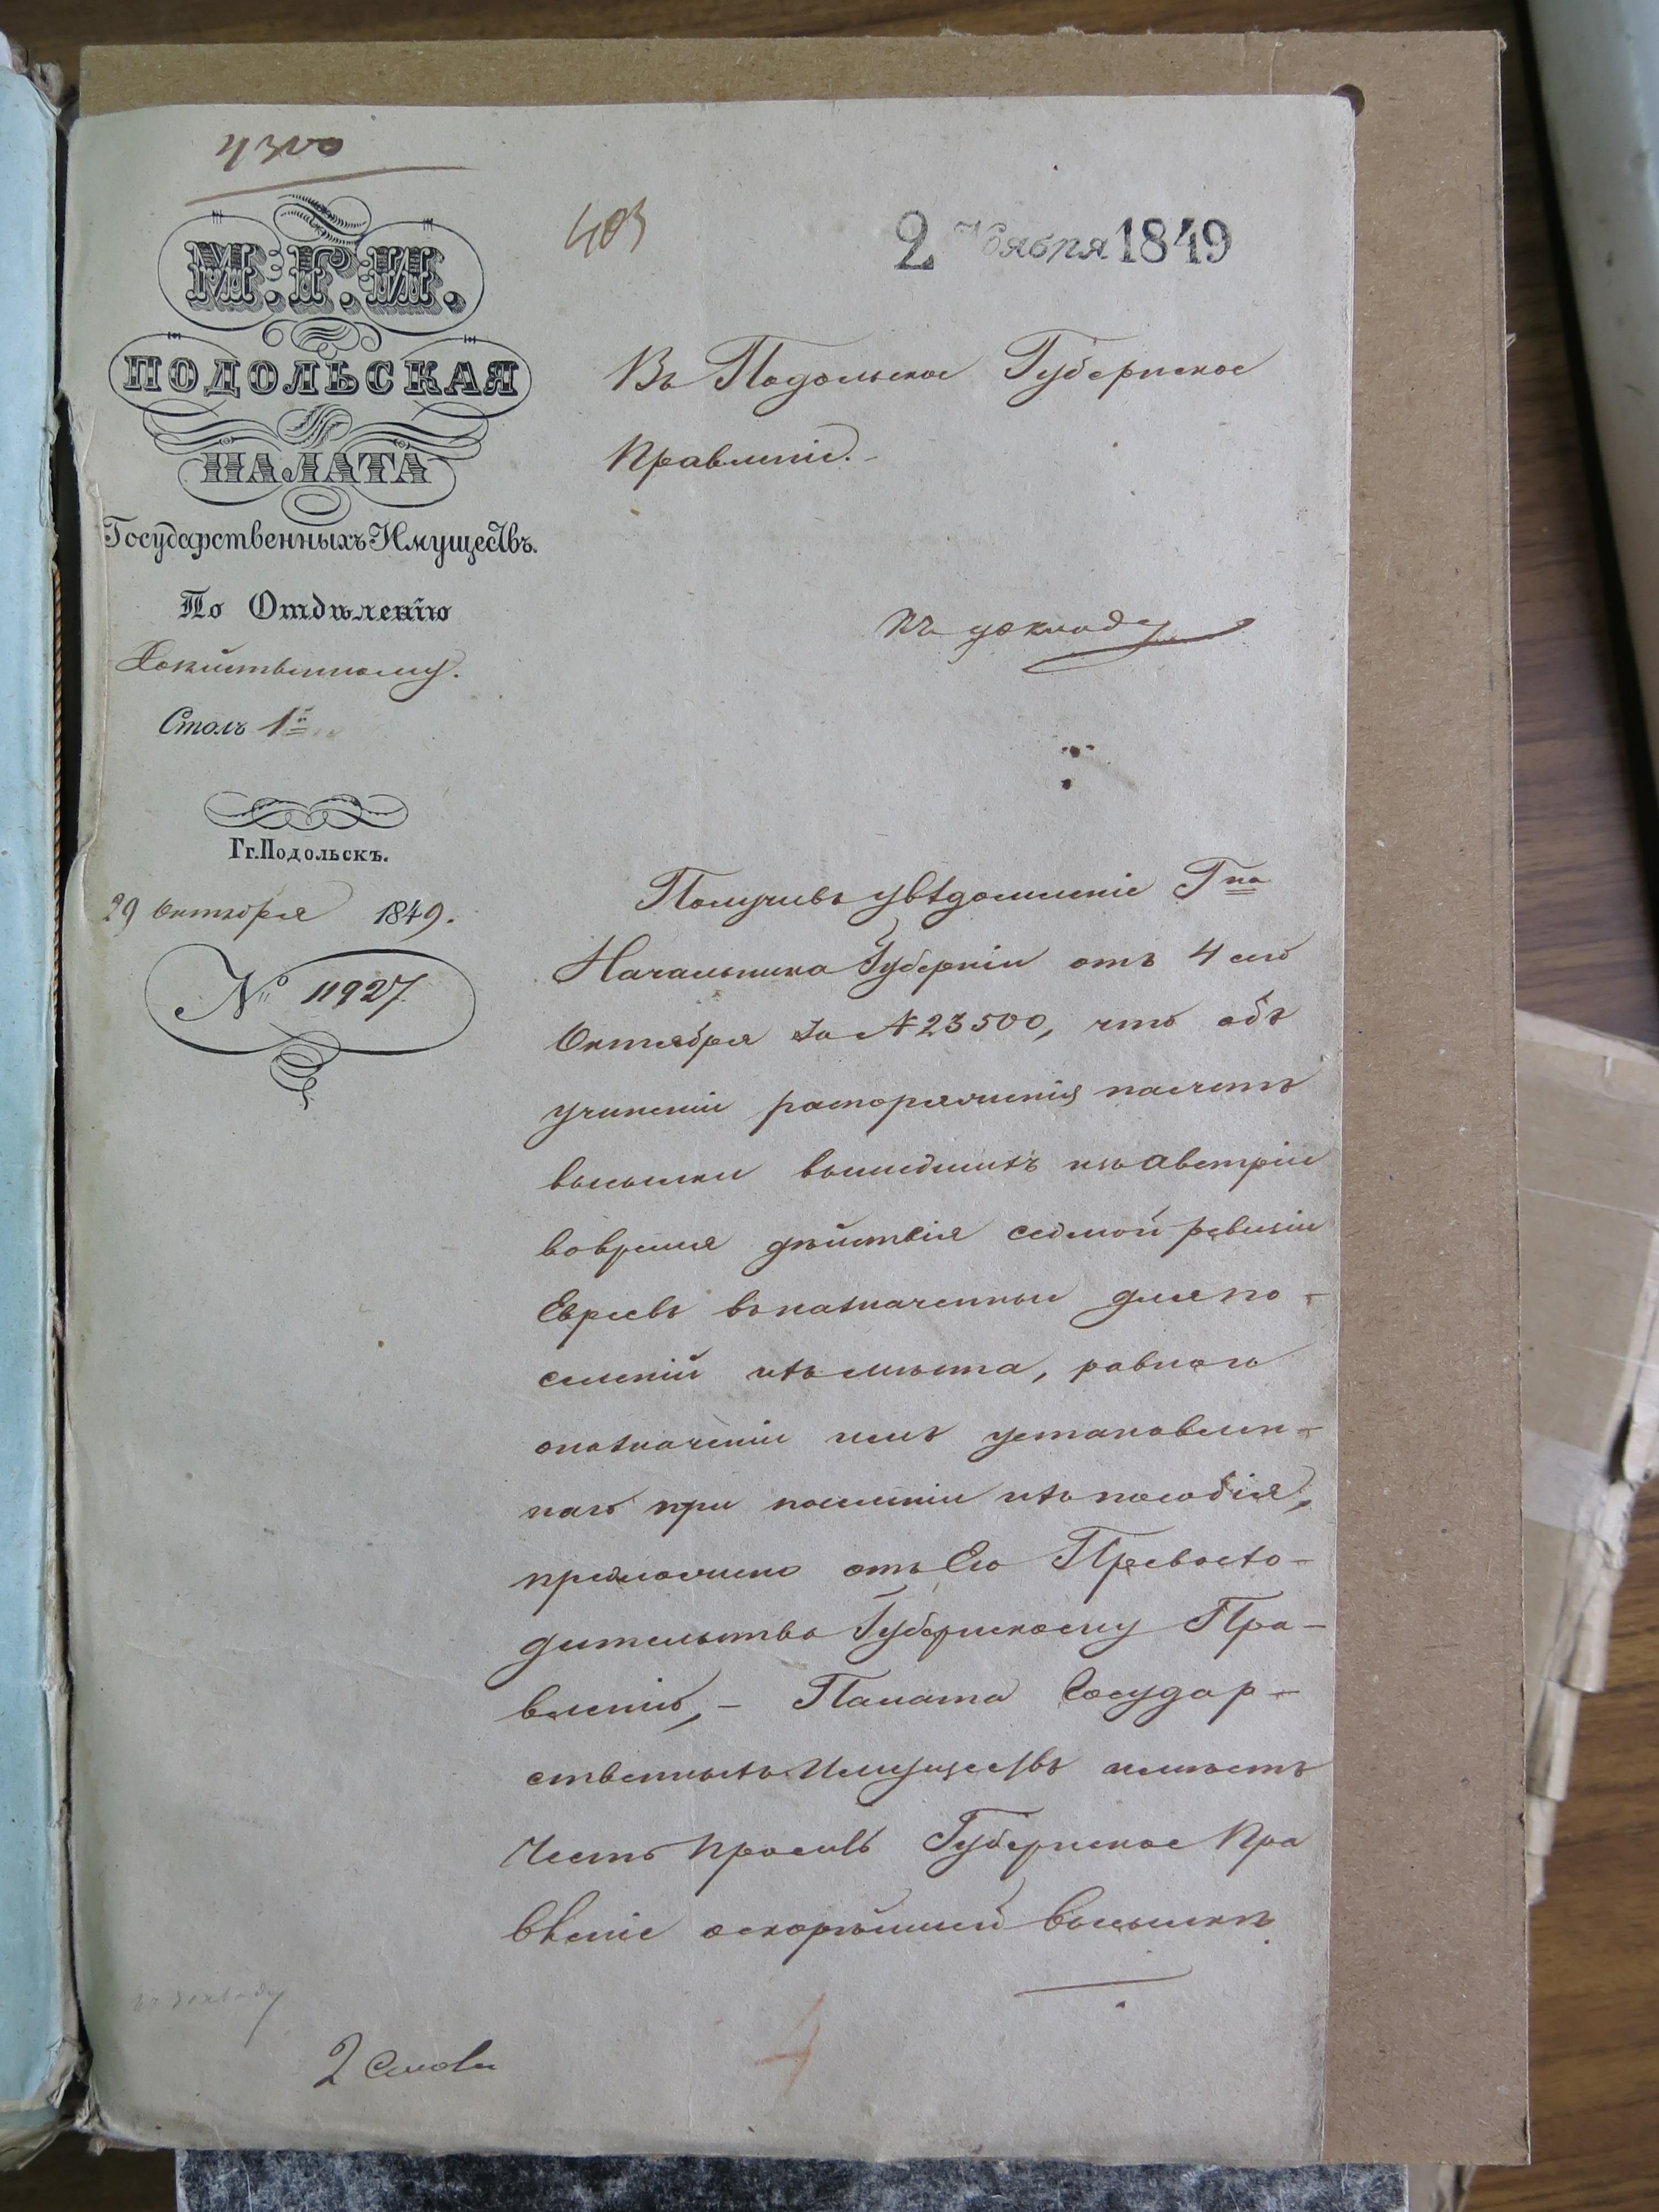 4300
М.Г.И.
ПОДОЛЬСКАЯ
ПАЛАТА
Государственныхъ Имуществъ.
По Отдѣленію
Хозяйственному.
Столъ 1й
Гг. Подольскъ.
29 Октября 1849.
№ 11927
403
2 Ноября 1849
Въ Подольское Губернское
Правленіе.-
Къ докладу
Получивъ увѣдомленіе Гна
Начальника Губерніи отъ 4 сего
Октября за № 23500, что объ
учиненіи распоряженія насчетъ
высылки вышедшихъ изъ Австріи
вовремя дѣйствія седмой ревизіи
Евреевъ въ назначенныя для по-
селеній ихъ мѣста, равно и
о назначеніи имъ установлен-
наго при поселеніи ихъ пособія,
предложено отъ Его Превосхо-
дительства Губернскому Пра-
вленію, - Палата Государ-
ственныхъ Имуществъ имѣетъ
честь просить Губернское Пра
вленіе о скорѣйшей высылкѣ
къ докладу
2 Стола